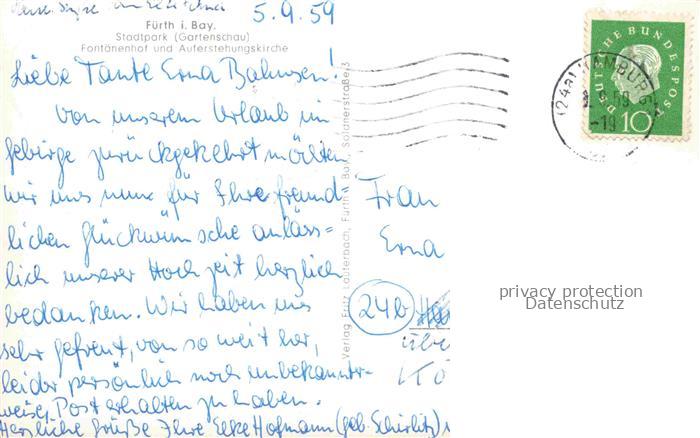 5.9.59
Fürth i. Bay.
Stadtpark (Gartenschau)
Fontänenhof und Auferstehungskirche
Liebe Tante Erna Bahnsen!
Von unserem Urlaub im
Gebirge zurückgekehrt möchten
wir uns nun für Ihre freund
lichen Glückwünsche anläss=
lich unserer Hochzeit herzlich
bedanken. Wir haben uns
sehr gefreut, von so weit her,
leider persönlich noch unbekannter-
weise, Post erhalten zu haben.
Herzliche Grüße Ihre Elke Hofmann (geb. Schirlitz)
Verlag Fritz Lauterbach, Fürth i. Bay., Soldnerstraße
DEUTSCHE BUNDESPOST
10
(24a) HAMBURG
9.59
-19
Frau
Erna
24b
übe
privacy protection
Datenschutz